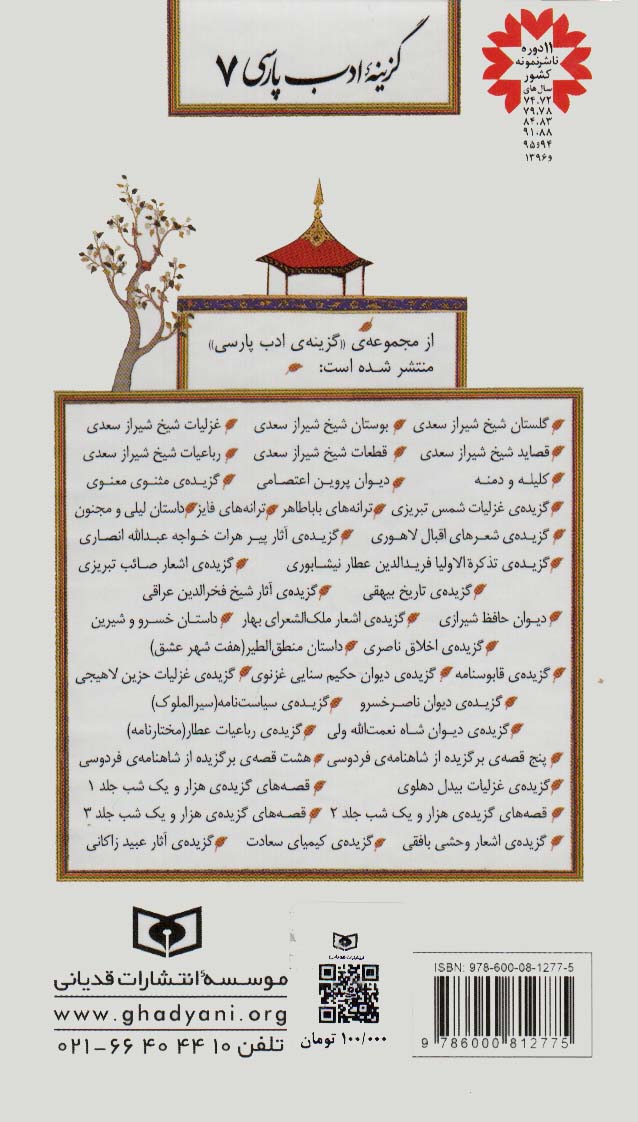 گزینهٔ ادب پارسی ۷
۱۱ دوره
ناشر نمونه
کشور
سال‌های
۷۴،۷۲
۷۹،۷۸
۸۴،۸۳
۹۱،۸۸
۹۴و۹۵
و۱۳۹۶
از مجموعه‌ی «گزینه‌ی ادب پارسی»
منتشر شده است:
گلستان شیخ شیراز سعدی بوستان شیخ شیراز سعدی غزلیات شیخ شیراز سعدی
قصاید شیخ شیراز سعدی قطعات شیخ شیراز سعدی رباعیات شیخ شیراز سعدی
کلیله و دمنه دیوان پروین اعتصامی گزیده‌ی مثنوی معنوی
گزیده‌ی غزلیات شمس تبریزی ترانه‌های باباطاهر ترانه‌های فایز داستان لیلی و مجنون
گزیده‌ی شعرهای اقبال لاهوری گزیده‌ی آثار پیر هرات خواجه عبدالله انصاری
گزیده‌ی تذکرة‌الاولیا فریدالدین عطار نیشابوری گزیده‌ی اشعار صائب تبریزی
گزیده‌ی تاریخ بیهقی گزیده‌ی آثار شیخ فخرالدین عراقی
دیوان حافظ شیرازی گزیده‌ی اشعار ملک‌الشعرای بهار داستان خسرو و شیرین
گزیده‌ی اخلاق ناصری داستان منطق‌الطیر(هفت شهر عشق)
گزیده‌ی قابوسنامه گزیده‌ی دیوان حکیم سنایی غزنوی گزیده‌ی غزلیات حزین لاهیجی
گزیده‌ی دیوان ناصرخسرو گزیده‌ی سیاست‌نامه(سیرالملوک)
گزیده‌ی دیوان شاه نعمت‌الله ولی گزیده‌ی رباعیات عطار(مختارنامه)
پنج قصه‌ی برگزیده از شاهنامه‌ی فردوسی هشت قصه‌ی برگزیده از شاهنامه‌ی فردوسی
گزیده‌ی غزلیات بیدل دهلوی قصه‌های گزیده‌ی هزار و یک شب جلد ۱
قصه‌های گزیده‌ی هزار و یک شب جلد ۲ قصه‌های گزیده‌ی هزار و یک شب جلد ۳
گزیده‌ی اشعار وحشی بافقی گزیده‌ی کیمیای سعادت گزیده‌ی آثار عبید زاکانی
موسسهٔ انتشارات قدیانی
www.ghadyani.org
تلفن ۱۰ ۴۴ ۴۰ ۶۶-۰۲۱
انتشارات قدیانی
۱۰۰/۰۰۰ تومان
ISBN: 978-600-08-1277-5
9 786000 812775